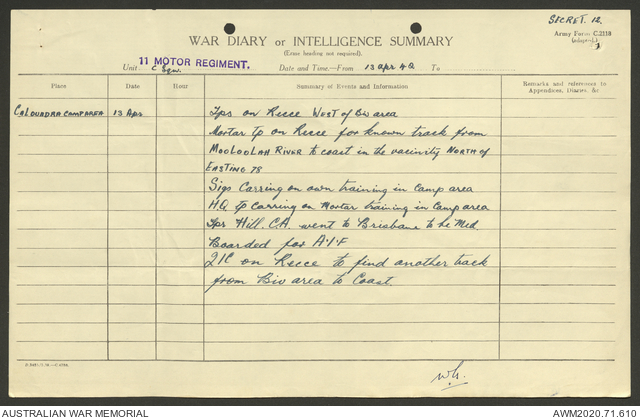 SECRET. 12.
WAR DIARY or INTELLIGENCE SUMMARY
Army Form C.2118
(Erase heading not required).
(adapted.)
11 MOTOR REGIMENT.
Unit C Sqn. Date and Time.—From 13 Apr 42 To
Place Date Hour Summary of Events and Information Remarks and references to Appendices, Diaries, &c
CALOUNDRA CAMP AREA 13 Apr Tps on Recce WEST of Biv area
Mortar tp on Recce for known track from
MOOLOOLAH RIVER to coast in the vacinity NORTH of
EASTING 78
Sigs Carring on own training in camp area
H.Q tp carring on Mortar training in camp area
Tpr Hill. C.A. went to Brisbane to be Med.
Boarded for A.I.F
2IC on Recce to find another track
from Biv area to Coast
AUSTRALIAN WAR MEMORIAL AWM2020.71.610